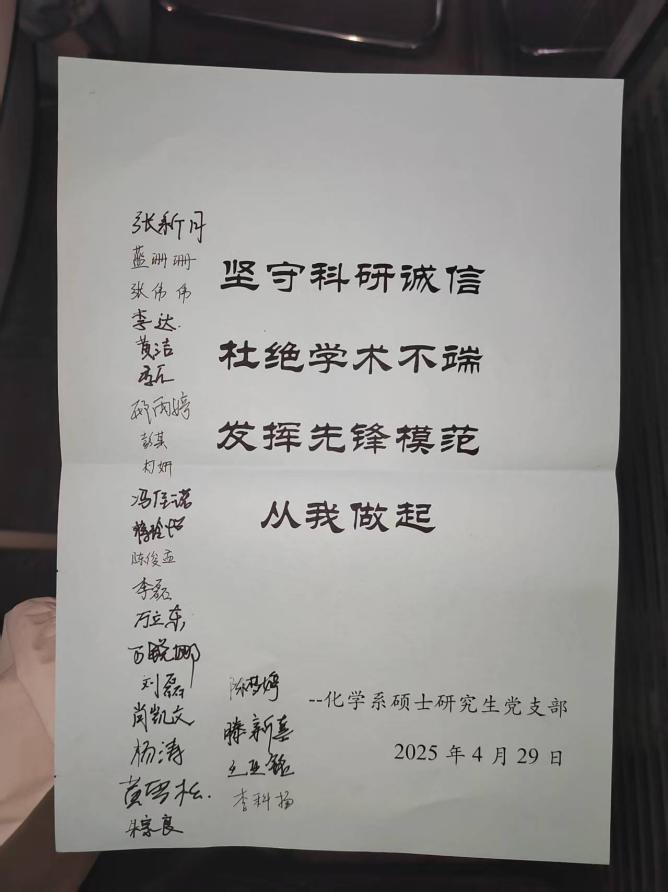 坚守科研诚信
杜绝学术不端
发挥先锋模范
从我做起
--化学系硕士研究生党支部
2025 年 4 月 29 日
张新月
蓝珊珊
张伟伟
李达
黄洁
雨婷
彭其
冯佳诺
陈俊孟
李磊
万立东
刘磊
肖凯文
杨涛
黄雪松
朱宗良
陈梦婷
滕新喜
李科扬